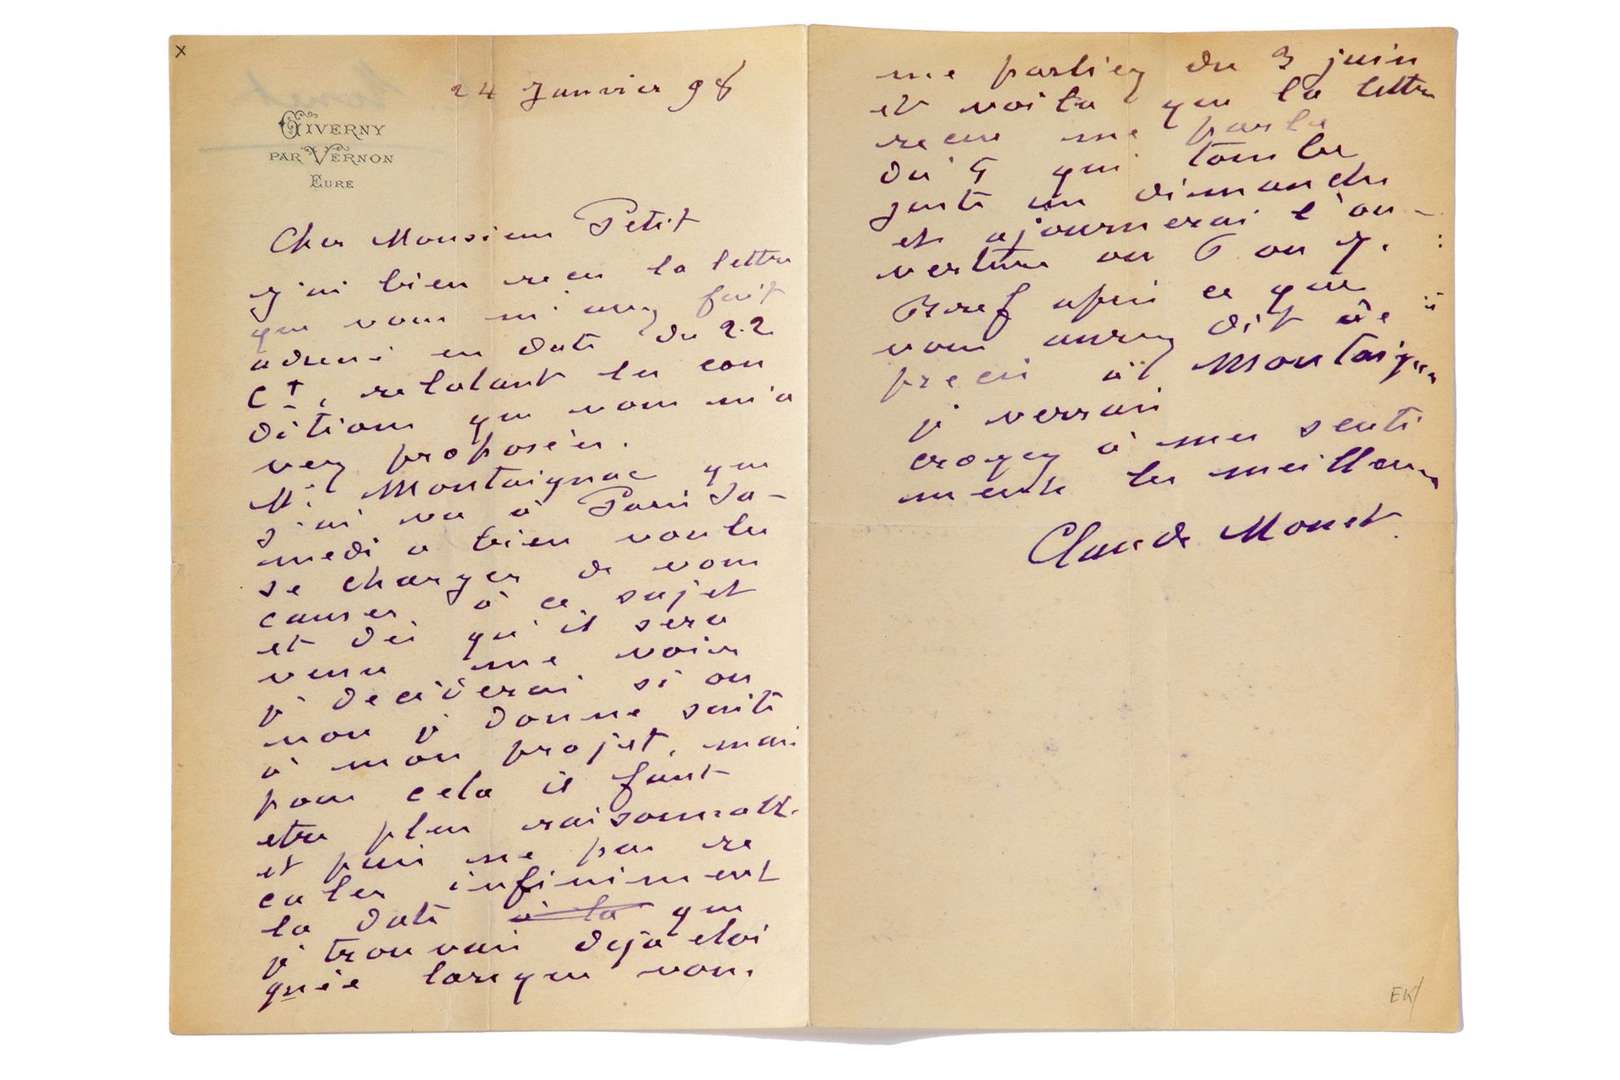 x
24 Janvier 98
GIVERNY
PAR VERNON
EURE
Cher Monsieur Petit
J'ai bien reçu la lettre
que vous m'avez fait
adressé en date du 22
Ct, relatant les con
ditions que vous m'a
vez proposées.
Mr Montaignac que
j'ai vu à Paris Sa-
medi a bien voulu
se charger de vous
causer à ce sujet
et dès qu'il sera
venu me voir
je déciderai si ou
non je donne suite
à mon projet, mais
pour cela il faut
etre plus raisonnable
et puis ne pas re
culer infiniment
la date à la que
je trouvais deja eloi
gnée lorsque vous
me parliez du 3 juin
et voila que la lettre
recue me parle
du 5 qui tombe
juste un dimanche
et ajournerai l'ou-
verture au 6 ou 7.
Bref apres ce que
vous aurez dit de
precis à Mr Montaignac
je verrai
croyez à mes senti
ments les meilleurs
Claude Monet.
EK/